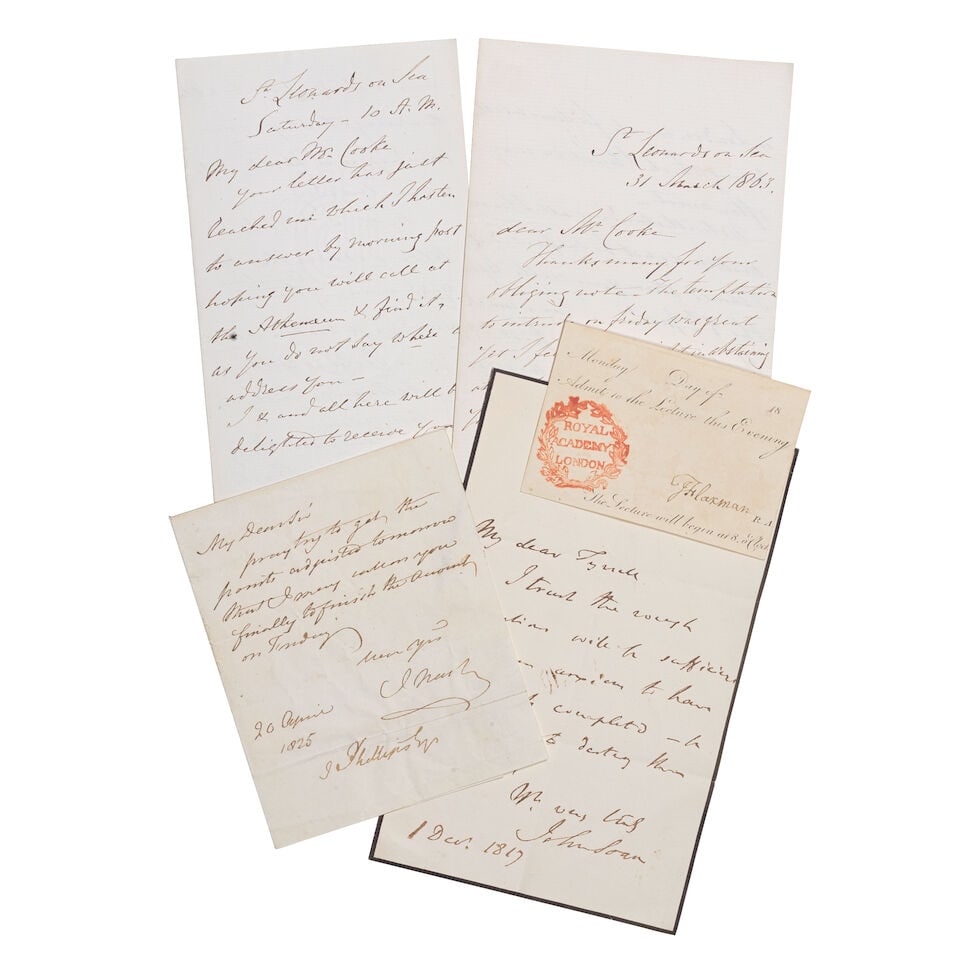 St Leonards on Sea
Saturday - 10 A.M.
My dear Mr Cooke
your letter has just
reached me which I hasten
to answer by morning post
hoping you will call at
the Athenaeum & find it,
as you do not say where
address you -
I & and all here will be
delighted to receive you
St Leonards on Sea
31 March 1863.
dear Mr Cooke
Thanks many for your
obliging note - The temptation
to intrude on friday was great
yet I in abstaining
Monday, Day of 18
Admit to the Lecture this Evening
ROYAL
ACADEMY
LONDON
J Flaxman R.A
The Lecture will begin at 8 o'Clock
My Dear Sir
pray try to get the
points adjusted tomorrow
that I may call on you
finally to finish the Account
on Friday
Yrs
J Nash
20 April
1825
J Phillips Esqr
My dear Tyrrell
I trust the rough
will be sufficient
anxious to have
completed - &
to destroy them
Yrs very truly
John Soane
1 Decr. 1817